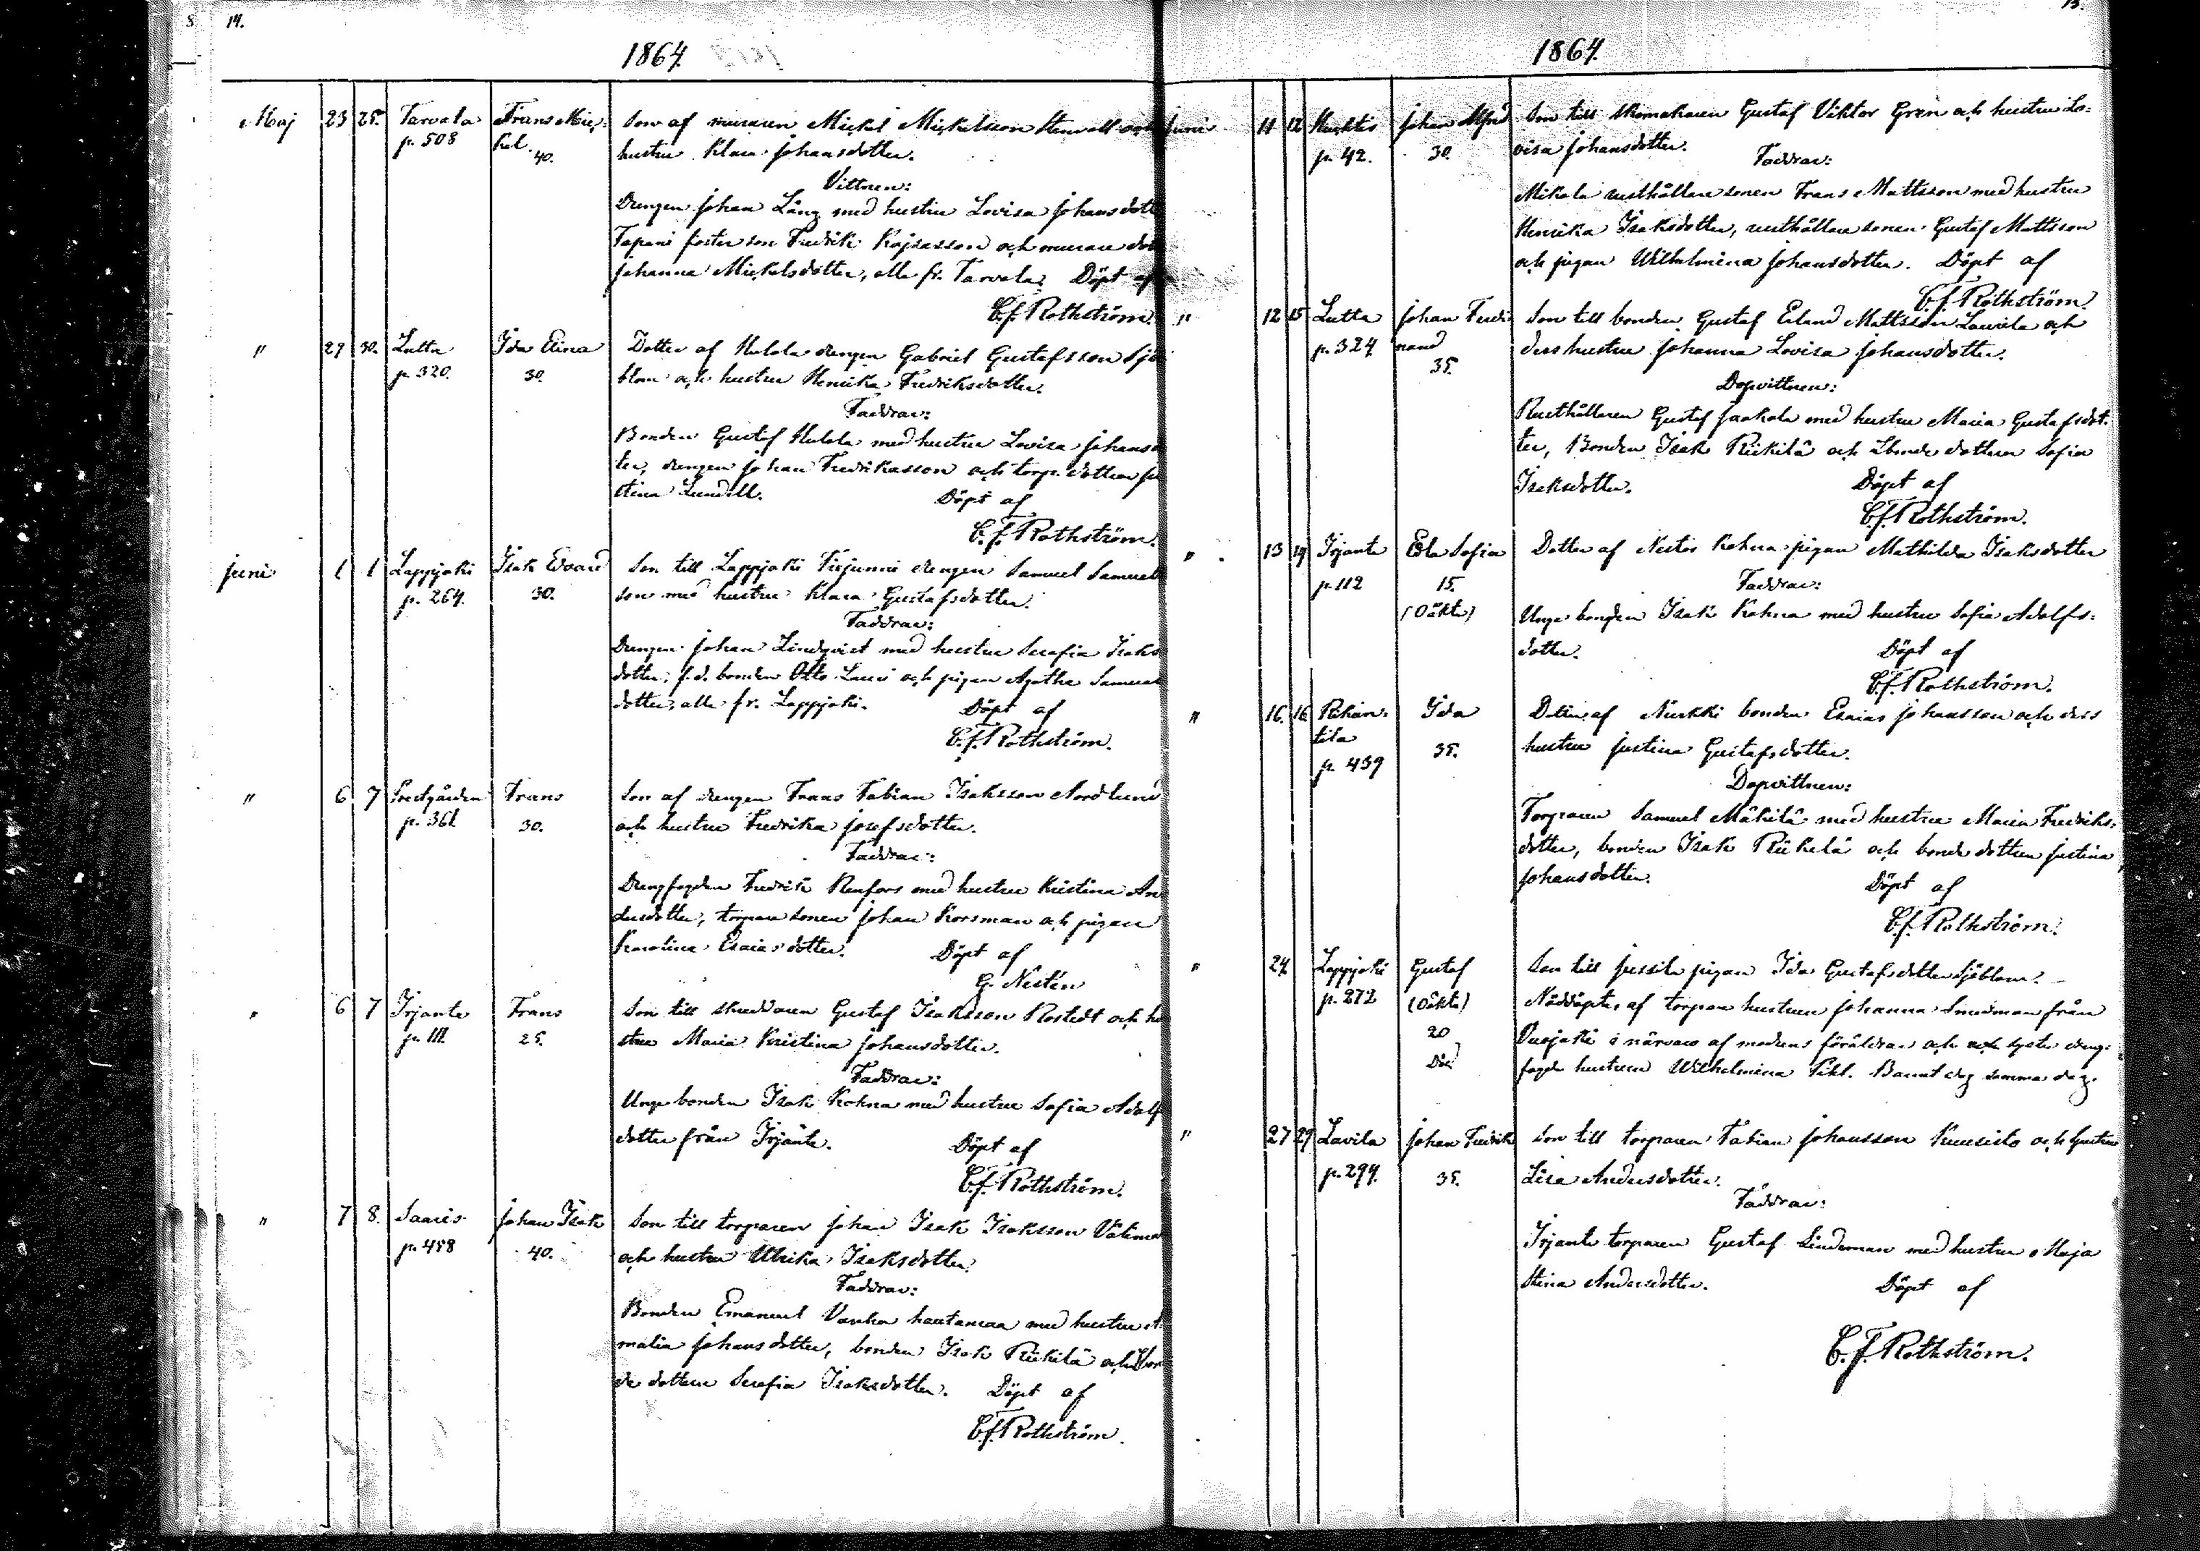 8
14.
1864.
Maj 23 25. Tarvala Frans Mic-
p. 508 kel.
40.
Son af muraren Mickel Mickelsson Stenvall och
hustru Klara Johansdotter.
Vittnen:
Drengen Johan Lång med hustru Lovisa Johansdott
Tapani fosterson Fredrik Kajsasson och murare dot
Johanna Mickelsdotter, alla fr. Tarvala. Döpt af
C.f. Rothström.
" 29 30. Lutta Ida Elina
p. 320. 30.
Dotter af Hulola drengen Gabriel Gustafsson Sjö
blom och hustru Henrika Fredriksdotter.
Faddrar:
Bonden Gustaf Hulola med hustru Lovisa Johansd
ter, drengen Johan Fredriksson och torp. dottren Ju
stina Lundell. Döpt af
C.f. Rothström.
Juni 1 1 Lappjoki Isak Edvard
p. 264. 30.
Son till Lappjoki drengen Samuel Samuel
son med hustru Klara Gustafsdotter.
Faddrar:
Drengen Johan Lindqvist med hustru Serafia Isaks
dotter; f.d. bonden Otto Lauri och pigan Agatha Samuel
dotter, alla fr. Lappjoki. Döpt af
C.f. Rothström.
" 6 7 Prestgården Frans
p. 361 30.
Son af drengen Frans Fabian Isaksson Nordlund
och hustru Fredrika Josefsdotter.
Faddrar:
Drengfogden Fredrik Renfors med hustru Kristina An
dersdotter, torparesonen Johan Korsman och pigan
Karolina Esaiasdotter. Döpt af
G. Nestén
" 6 7 Irjante Frans
p. 111. 25.
Son till skreddaren Gustaf Isaksson Rostedt och hu
stru Maria Kristina Johansdotter.
Faddrar:
Unge bonden Isak Kohna med hustru Sofia Adolf
dotter från Irjante. Döpt af
C.f. Rothström.
" 7 8. Saaris Johan Isak
p. 458 40.
Son till torparen Johan Isak Isaksson Välima
och hustru Ulrika Isaksdotter.
Faddrar:
Bonden Emanuel Vanha hautamaa med hustru A
malia Johansdotter, bonden Isak Riikilä och bon
de dottren Serafia Isaksdotter. Döpt af
C.f. Rothström.
15.
1864.
Juni 11 12 Johan Alfred
p. 42. 30.
Son till skomakaren Gustaf Viktor Gren och hustru Lo-
visa Johansdotter.
Faddrar:
Mikola rusthållare sonen Frans Mattsson med hustru
Henrika Isaksdotter, rusthållare sonen Gustaf Mattsson
och pigan Wilhelmina Johansdotter. Döpt af
C.f. Rothström.
" 12 15 Lutta Johan Ferdi
p. 324 nand
35.
Son till bonden Gustaf Erland Mattsson Laurila och
dess hustru Johanna Lovisa Johansdotter.
Dopvittnen:
Rusthållaren Gustaf Jaakola med hustru Maria Gustafsdot-
ter, Bonden Isak Riikilä och bonde dottren Sofia
Isaksdotter. Döpt af
C.f. Rothström.
" 13 14 Irjante Eva Sofia
p. 112 15.
(Oäkta)
Dotter af Nestor Kohna pigan Mathilda Isaksdotter
Faddrar:
Unge bonden Isak Kohna med hustru Sofia Adolfs-
dotter. Döpt af
C.f. Rothström.
" 16. 16. Rikan- Ida
tila 35.
p. 439
Dotter af Nirkki bonden Esaias Johansson och dess
hustru Justina Gustafsdotter.
Dopvittnen:
Torparen Samuel Mäkilä med hustru Maria Fredriks-
dotter, bonden Isak Riikilä och bonde dottren Justina
Johansdotter. Döpt af
C.f. Rothström.
" 24 Lappjoki Gustaf
p. 272 (Oäkta)
20
Död
Son till Jussila pigan Ida Gustafsdotter Sjöblom.
Nöddöpt af torpare hustrun Johanna Smedman från
i närvaro af modrens föräldrar och syster dreng-
fogde hustrun Wilhelmina samma dag.
" 27 29 Lavila Johan Fredrik
p. 294. 35.
Son till torparen Fabian Johansson Kuusisto och hustru
Lisa Andersdotter.
Faddrar:
Irjante torparen Gustaf Lindeman med hustru Maja
Stina Andersdotter. Döpt af
C. f. Rothström.